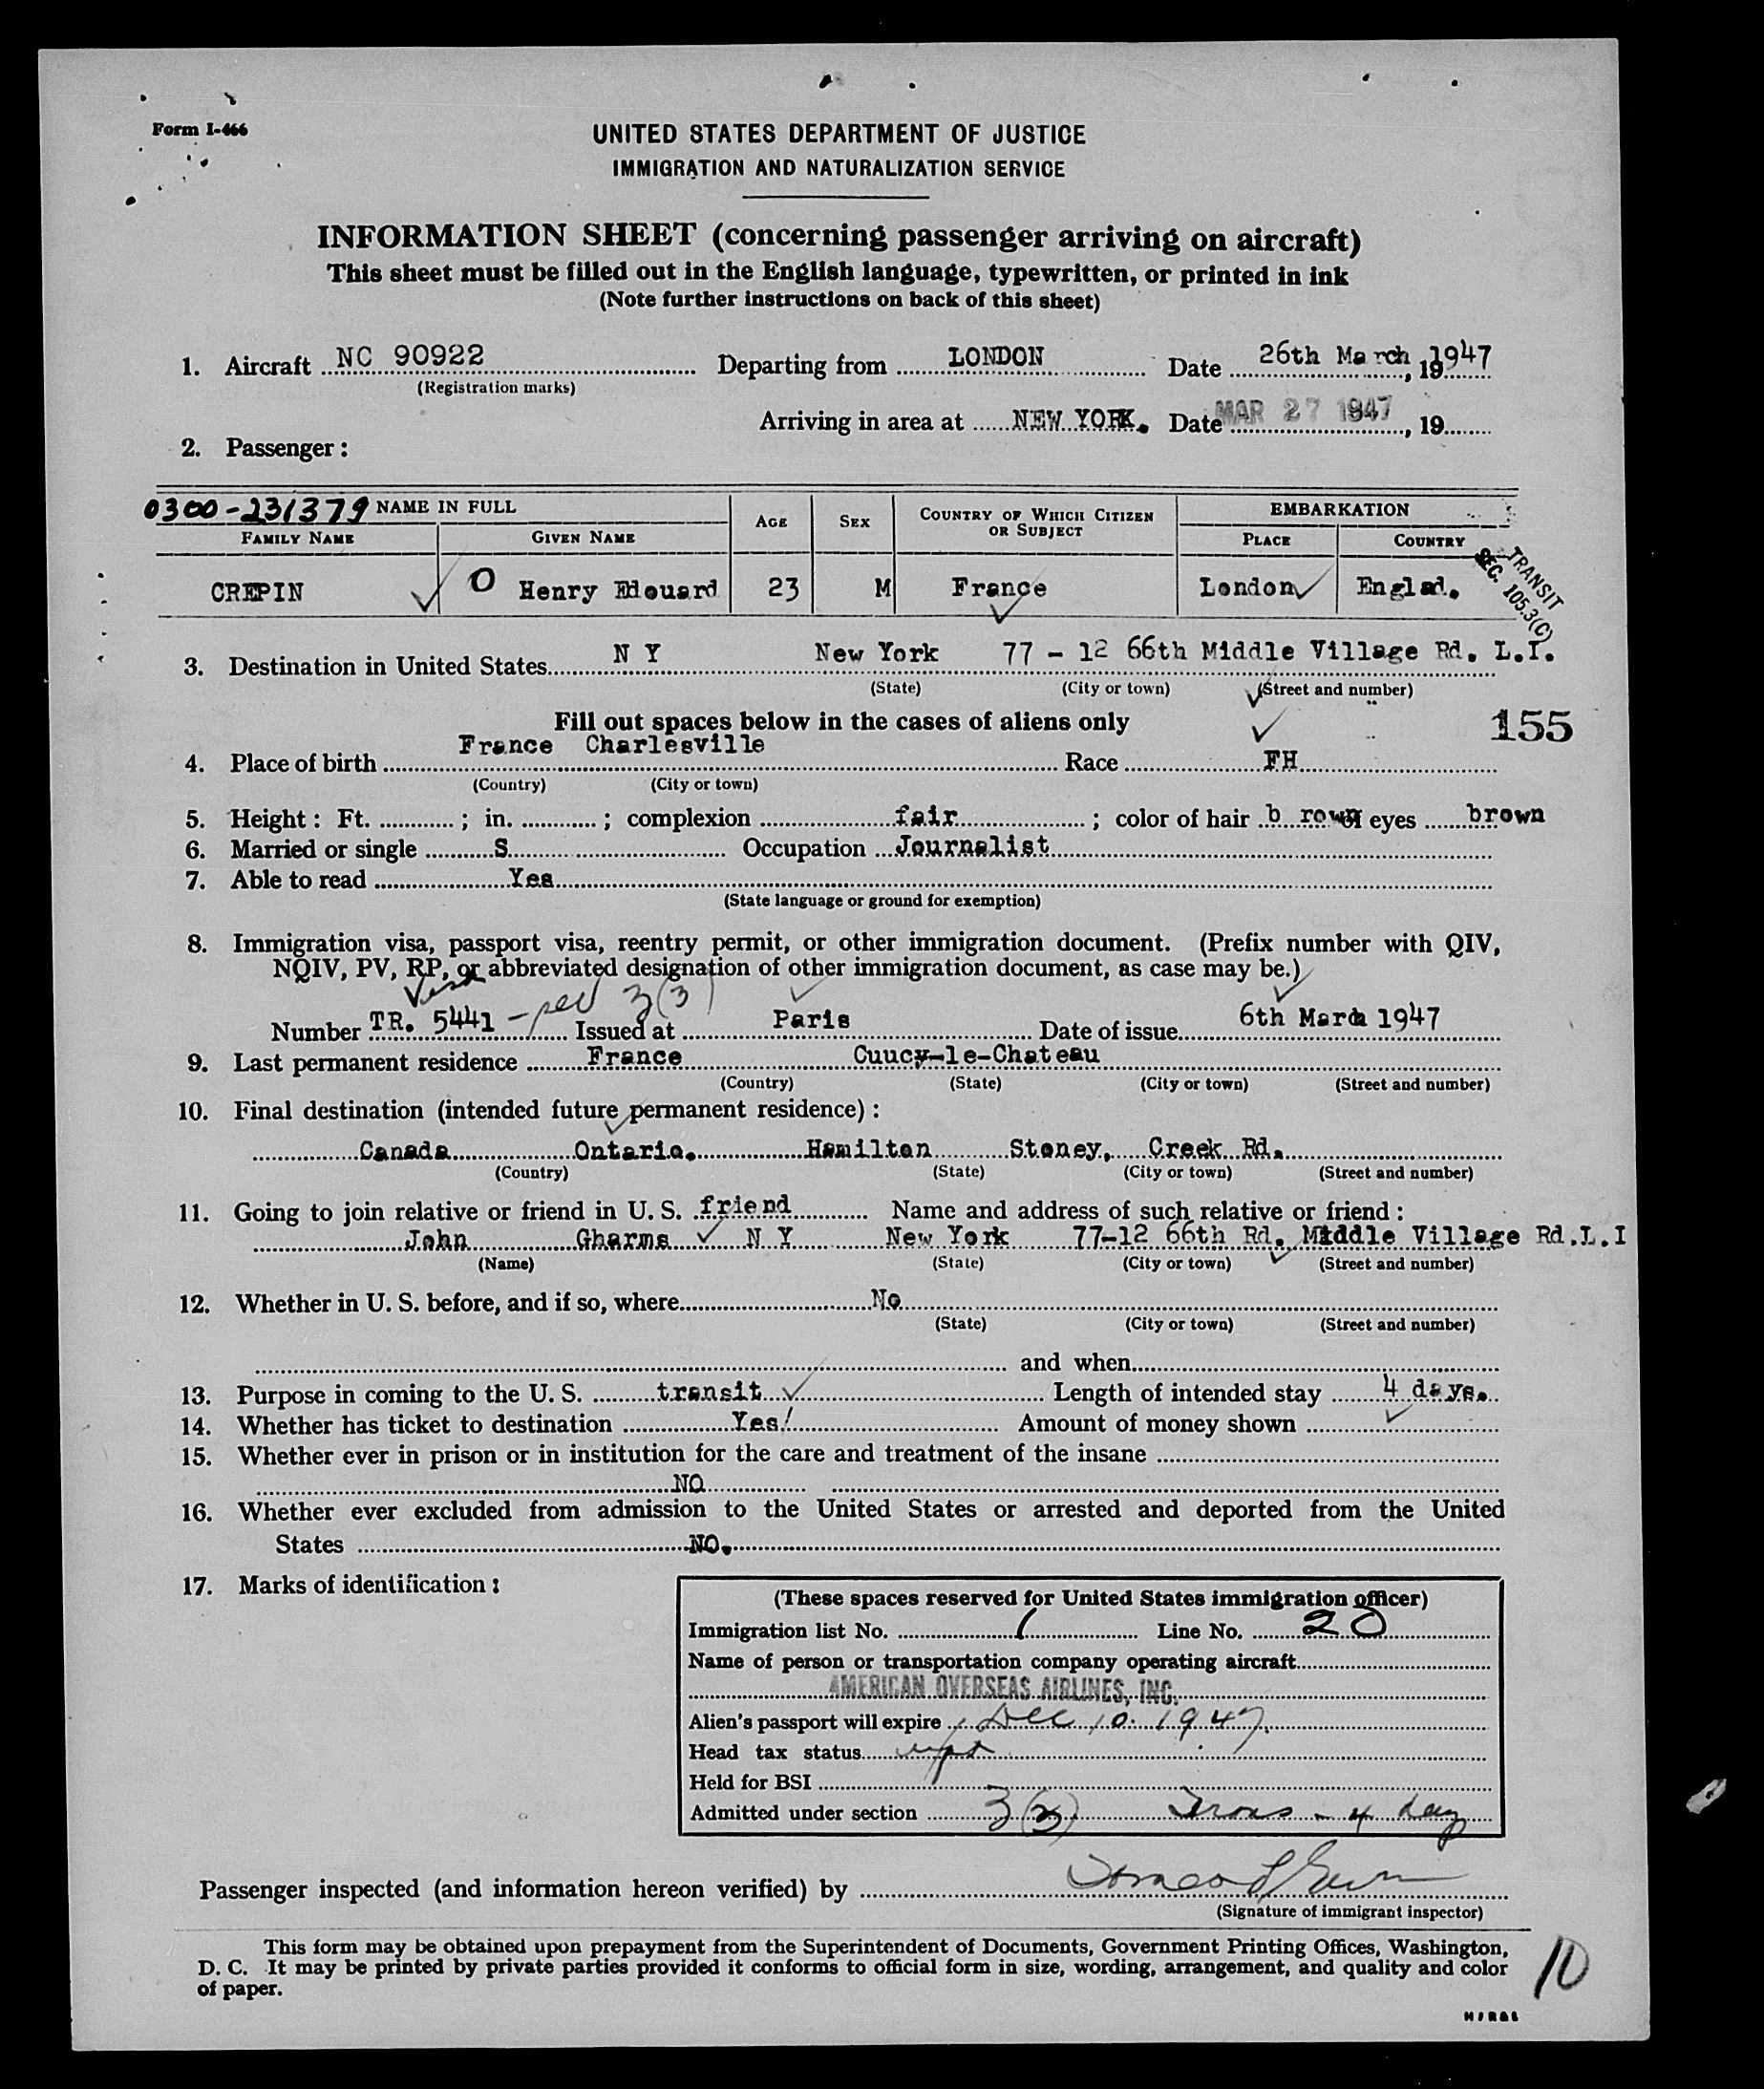 Form I-466
UNITED STATES DEPARTMENT OF JUSTICE
IMMIGRATION AND NATURALIZATION SERVICE
INFORMATION SHEET (concerning passenger arriving on aircraft)
This sheet must be filled out in the English language, typewritten, or printed in ink
(Note further instructions on back of this sheet)
1. Aircraft NC 90922 Departing from LONDON Date 26th March, 19 1947
(Registration marks)
Arriving in area at NEW YORK. Date MAR 27 1947, 19
2. Passenger:
0300-231379 NAME IN FULL AGE SEX COUNTRY OF WHICH CITIZEN OR SUBJECT EMBARKATION
FAMILY NAME GIVEN NAME PLACE COUNTRY
CREPIN O Henry Edouard 23 M France London Englad.
TRANSIT
SEC. 105.3(C)
3. Destination in United States N Y New York 77 - 12 66th Middle Village Rd. L.I.
(State) (City or town) (Street and number)
Fill out spaces below in the cases of aliens only
155
4. Place of birth France Charlesville Race FH
(Country) (City or town)
5. Height: Ft. ; in. ; complexion fair ; color of hair b rown of eyes brown
6. Married or single S Occupation Journalist
7. Able to read Yes
(State language or ground for exemption)
8. Immigration visa, passport visa, reentry permit, or other immigration document. (Prefix number with QIV,
NQIV, PV, RP, or abbreviated designation of other immigration document, as case may be.)
Visa 3(3)
Number TR. 5441 - Issued at Paris Date of issue 6th March 1947
9. Last permanent residence France Cuucy-le-Chateau
(Country) (State) (City or town) (Street and number)
10. Final destination (intended future permanent residence):
Canada Ontario. Hamilton Stoney, Creek Rd.
(Country) (State) (City or town) (Street and number)
11. Going to join relative or friend in U. S. friend Name and address of such relative or friend:
John Gharms N Y New York 77-12 66th Rd. Middle Village Rd.L.I
(Name) (State) (City or town) (Street and number)
12. Whether in U. S. before, and if so, where No
(State) (City or town) (Street and number)
and when
13. Purpose in coming to the U. S. transit Length of intended stay 4 days.
14. Whether has ticket to destination Yes Amount of money shown
15. Whether ever in prison or in institution for the care and treatment of the insane
NO
16. Whether ever excluded from admission to the United States or arrested and deported from the United
States NO.
17. Marks of identification:
(These spaces reserved for United States immigration officer)
Immigration list No. 1 Line No. 20
Name of person or transportation company operating aircraft
AMERICAN OVERSEAS AIRLINES, INC.
Alien's passport will expire Dec 10. 1947.
Head tax status
Held for BSI
Admitted under section 3(3) Trans - 4 day
Passenger inspected (and information hereon verified) by
(Signature of immigrant inspector)
This form may be obtained upon prepayment from the Superintendent of Documents, Government Printing Offices, Washington,
D. C. It may be printed by private parties provided it conforms to official form in size, wording, arrangement, and quality and color
of paper.
10